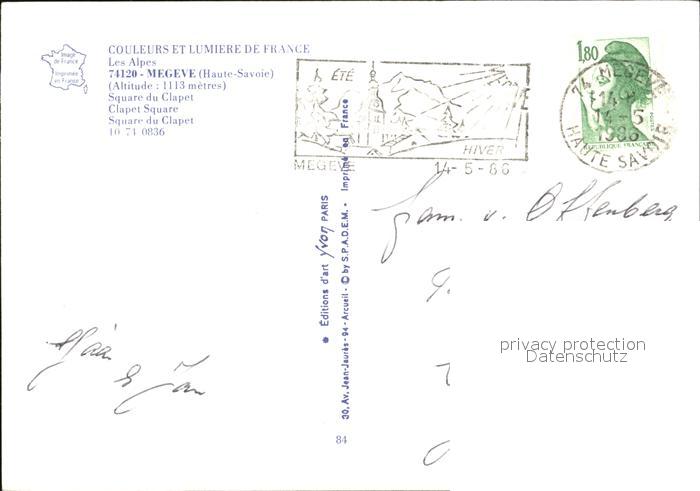 Image
de France
Imprimée
en France
COULEURS ET LUMIERE DE FRANCE
Les Alpes
74120 - MEGEVE (Haute-Savoie)
(Altitude : 1113 mètres)
Square du Clapet
Clapet Square
Square du Clapet
10 74 0836
ÉTÉ
HIVER
MEGEVE
14-5-86
1,80
REPUBLIQUE FRANCAISE
74 MEGEVE
14-5
1986
HAUTE SAVOIE
Fam. v. Offenberg
& Jan
privacy protection
Datenschutz
● Éditions d'art Yvon PARIS
30, Av. Jean-Jaurès-94-Arcueil - © by S.P.A.D.E.M. - Imprimé en France
84